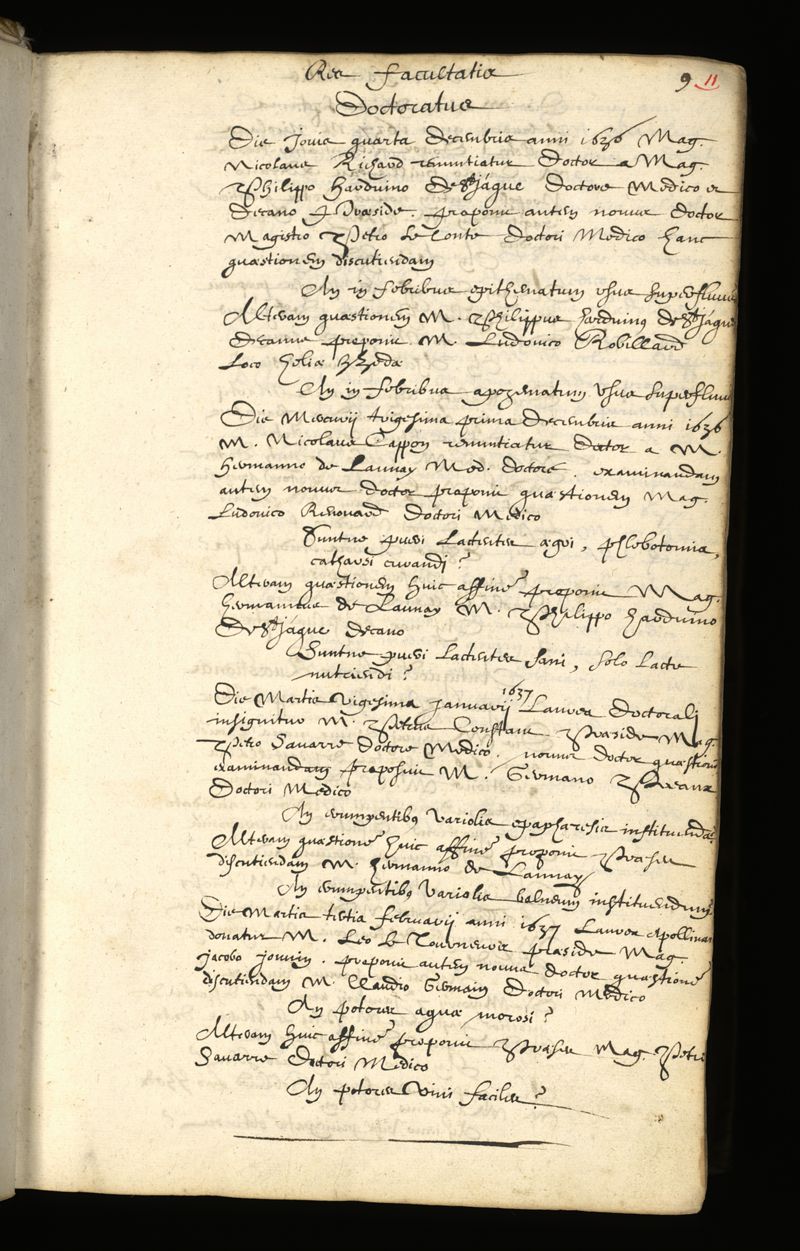 Res facultatis
9 11
Doctoratus
Die Jovis quarta decembris anni 1636 Mag.
Nicolaus Richard renuntiatur Doctor a Mag.
Philippo Harduino de St Jàque doctore Medico et
Decano Præside. proponit autem novus doctor
Magistro Petro Le Conte Doctori Medico hanc
quæstionem discutiendam
An in febribus epithematum usus superfluus
Alteram quæstionem M. Philippus harduinus de St Jàque
decanus proponit M. Ludovico Robillard
Loco heliæ Bedæ
An in febribus apozematum usus superfluus
Die Mercurij trigesima prima decembris anni 1636
M. Nicolaus Cappon renuntiatur doctor a M.
Hermanno de Launay Med. doctore. examinandam
autem novus doctor proponit quæstionem Mag.
Ludovico Renouard Doctori Medico
Suntne pueri Lactentes ægri, phlebotomia,
catharsi curandi?
Alteram quæstionem huic affine proponit Mag.
hermannus de Launay M. Philippo harduino
de St Jàque decano
Suntne pueri Lactentes sani, solo Lacte
nutriendi?
Die Martis vigesima januarij 1637 Laurea doctorali
insignitur M. Petrus Constans Præside Mag.
Petro Savarre Doctore Medico. novus doctor quæstionem
examinandam proposuit M. Germano Preaux
Doctori Medico
An erumpentibus variolis epapharesis instituenda?
Alteram quæstione huic affine proponit Præses
discutiendam M. hermanno de Launay
An erumpentibus variolis balneum instituendum?
Die Martis tertia februarij anni 1637 Laurea Apollinari
donatur M. Leo Le Tourneurs præside Mag.
jacobo jouvin. proponit autem novus doctor quæstione
discutiendam M. Claudio Germain Doctori Medico
An potores aquæ morosi?
Alteram huic affine proponit Præses Mag. Petrus
Savarre Doctori Medico
An potores vini faciles?